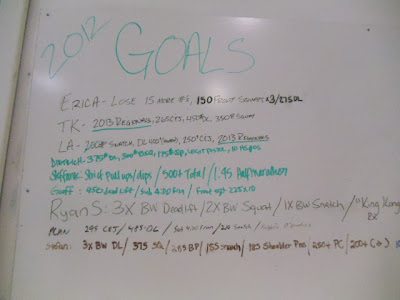 2012
GOALS
ERICA - LOSE 15 MORE #s, 150 FRONT SQUATS x3/275 DL
TK - 2013 REGIONALS, 265 C&J, 450# DL, 350# SQUAT
LA - 200# SNATCH, DL 400, 250# C&J, 2013 REGIONALS
375# DL, 300# BSQ, 175# SP,
Strict Pull ups/dips / 500+ Total / 1:45 Half marathon
Geoff: 450 dead lift / Sub 4:00 Fran / Front sqt 225x10
RYAN S: 3x BW Deadlift / 2x BW Squat / 1x BW Snatch / "King Kong"
295 C&J / 485 DL / Sub 4:00 Fran /
3x BW DL / 375 SQ / 285 BP / 185 Snatch / 185 Shoulder Press / 250+ PC / 200+